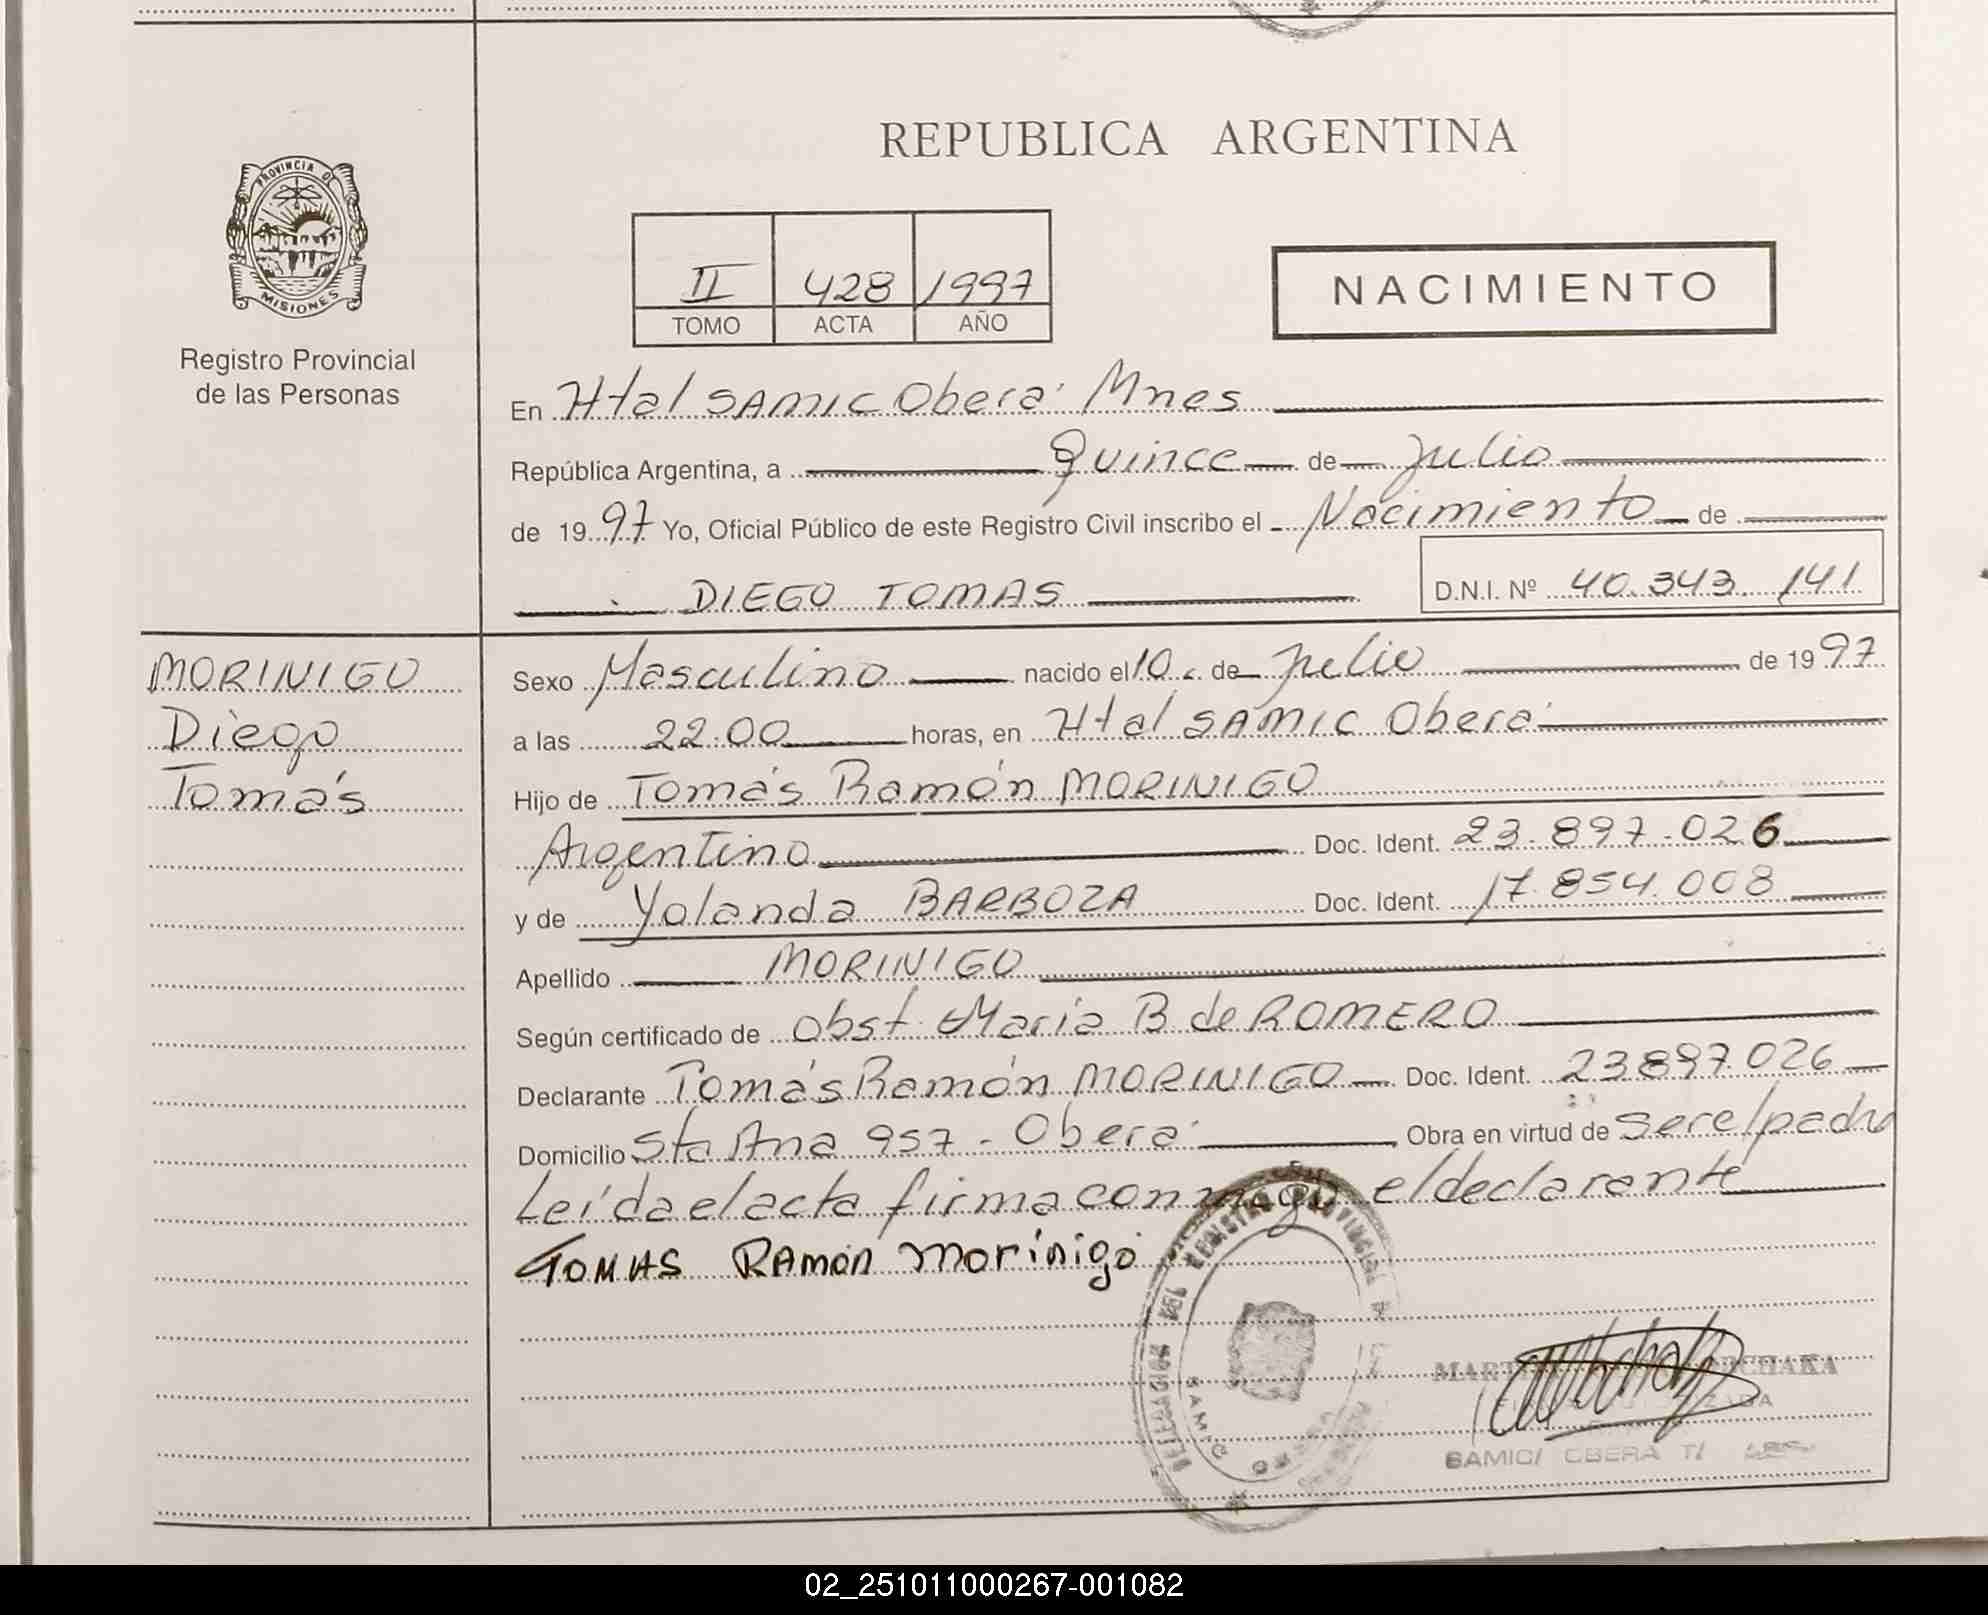 REPUBLICA ARGENTINA
PROVINCIA DE
MISIONES
Registro Provincial
de las Personas
II 428 1997
TOMO ACTA AÑO
NACIMIENTO
En Htal SAMIC Oberá Mnes
República Argentina, a Quince de Julio
de 1997 Yo, Oficial Público de este Registro Civil inscribo el Nacimiento de
DIEGO TOMAS D.N.I. Nº 40.343.141
MORINIGO
Diego
Tomás
Sexo Masculino nacido el 10 de Julio de 1997
a las 22.00 horas, en Htal SAMIC Oberá
Hijo de Tomás Ramón MORINIGO
Argentino Doc. Ident. 23.897.026
y de Yolanda BARBOZA Doc. Ident. 17.854.008
Apellido MORINIGO
Según certificado de Obst. María B de ROMERO
Declarante Tomás Ramón MORINIGO Doc. Ident. 23897.026
Domicilio Sta Ana 957 - Oberá Obra en virtud de ser el padre
Leída el acta firma conmigo el declarante
TOMAS RAMÓN morinigo
REGISTRO PROVINCIAL
SAMIC
SAMIC/ OBERA
02_251011000267-001082